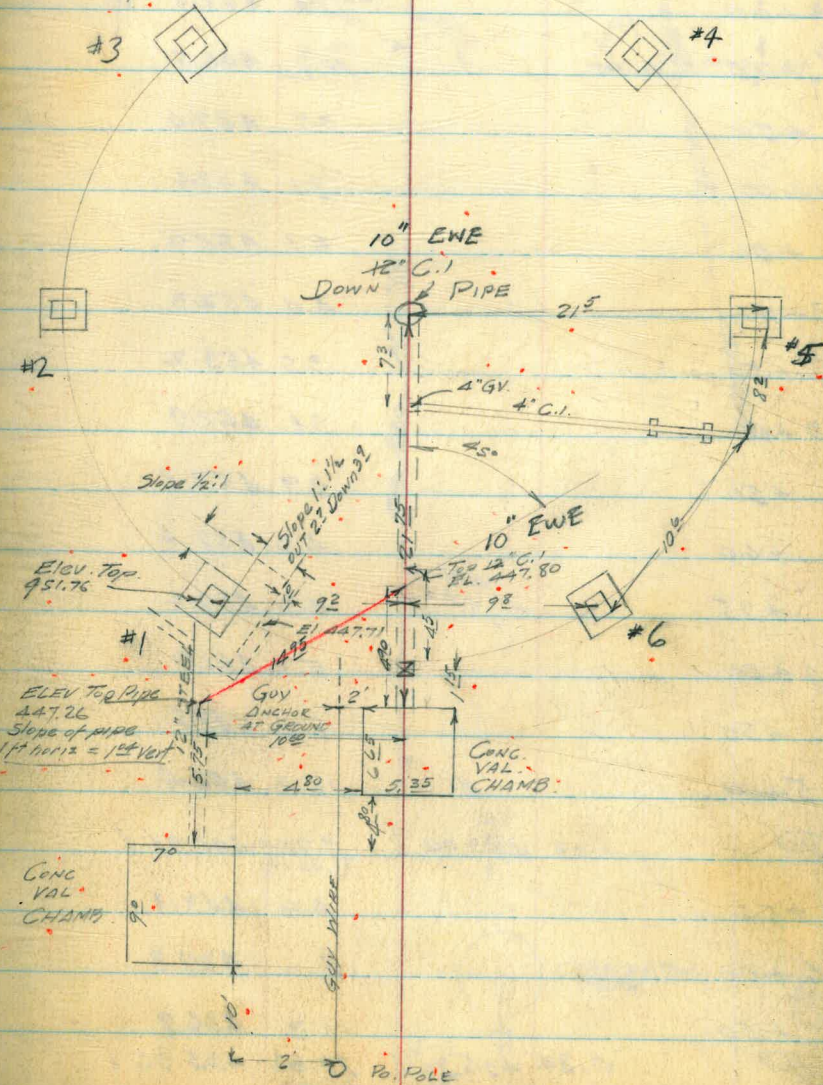 #3
#4
10" EWE
12" C.I
DOWN PIPE
21 5
#2
#5
7 3
8 2
4" GV.
4" C.I.
45°
Slope 1/2:1
Slope 1:1 1/2
OUT 2 2 Down 3 9
21.75
10" EWE
10 6
Elev. Top
451.76
Top 12" C.I
EL. 447.80
9 2
9 8
El 447.71
#1
#6
14 95
4 5
4 90
1 15
ELEV Top Pipe
447.26
Slope of pipe
1 ft horiz = 1 04 Vert
12" STEEL
GUY
ANCHOR
AT GROUND
2'
5.75
6 65
CONC.
VAL.
CHAMB.
4 80
5.35
4 80
7 0
CONC
VAL
CHAMB
9 0
GUY WIRE
10'
2
Po. POLE